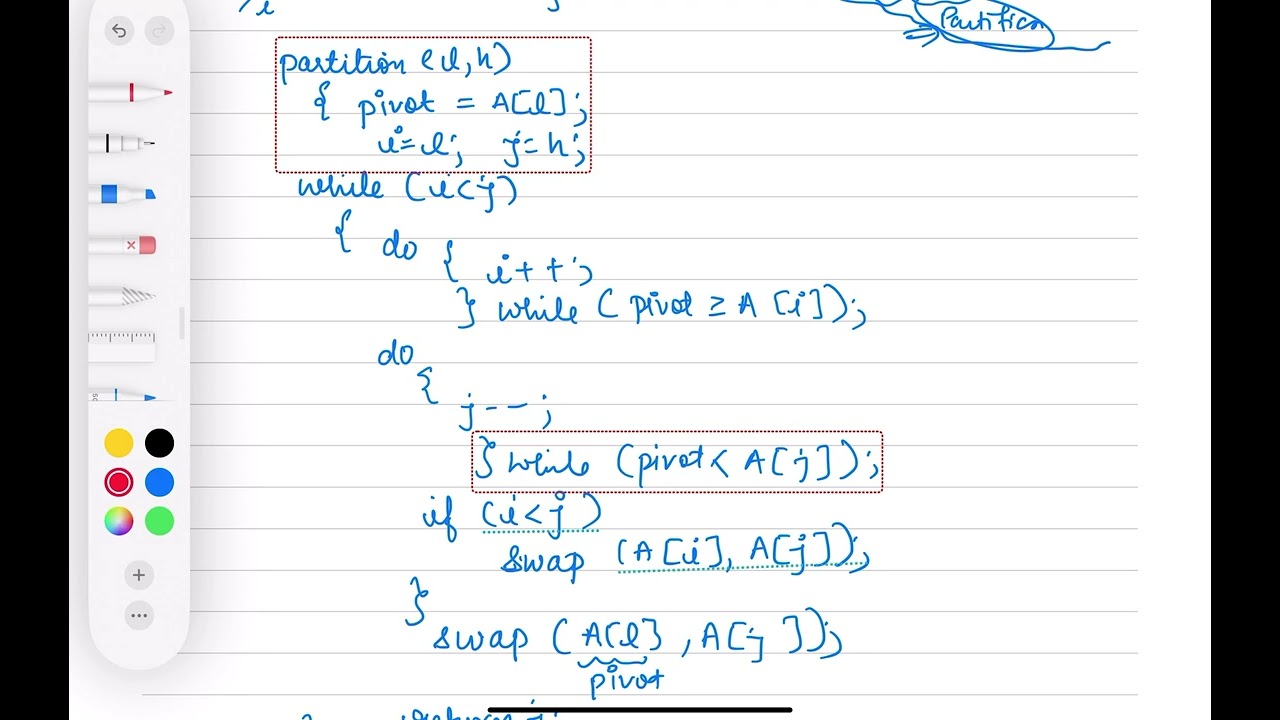 Partition
partition (l,h)
{ pivot = A[l];
i=l; j=h;
while (i<j)
{ do { i++;
} while ( pivot ≥ A [i]);
do
{
j--;
} while (pivot < A[j]);
if (i<j)
swap (A[i], A[j]);
}
swap (A[l] , A[j]);
pivot